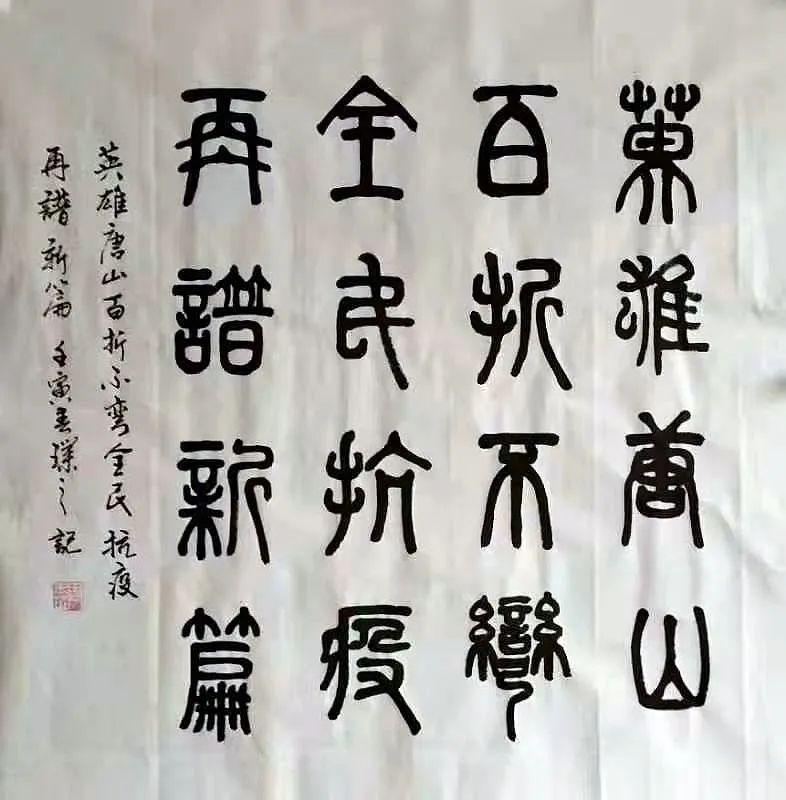 英雄唐山
百折不彎
全民抗疫
再譜新篇
英雄唐山百折不彎全民抗疫
再譜新篇 壬寅春璞之記